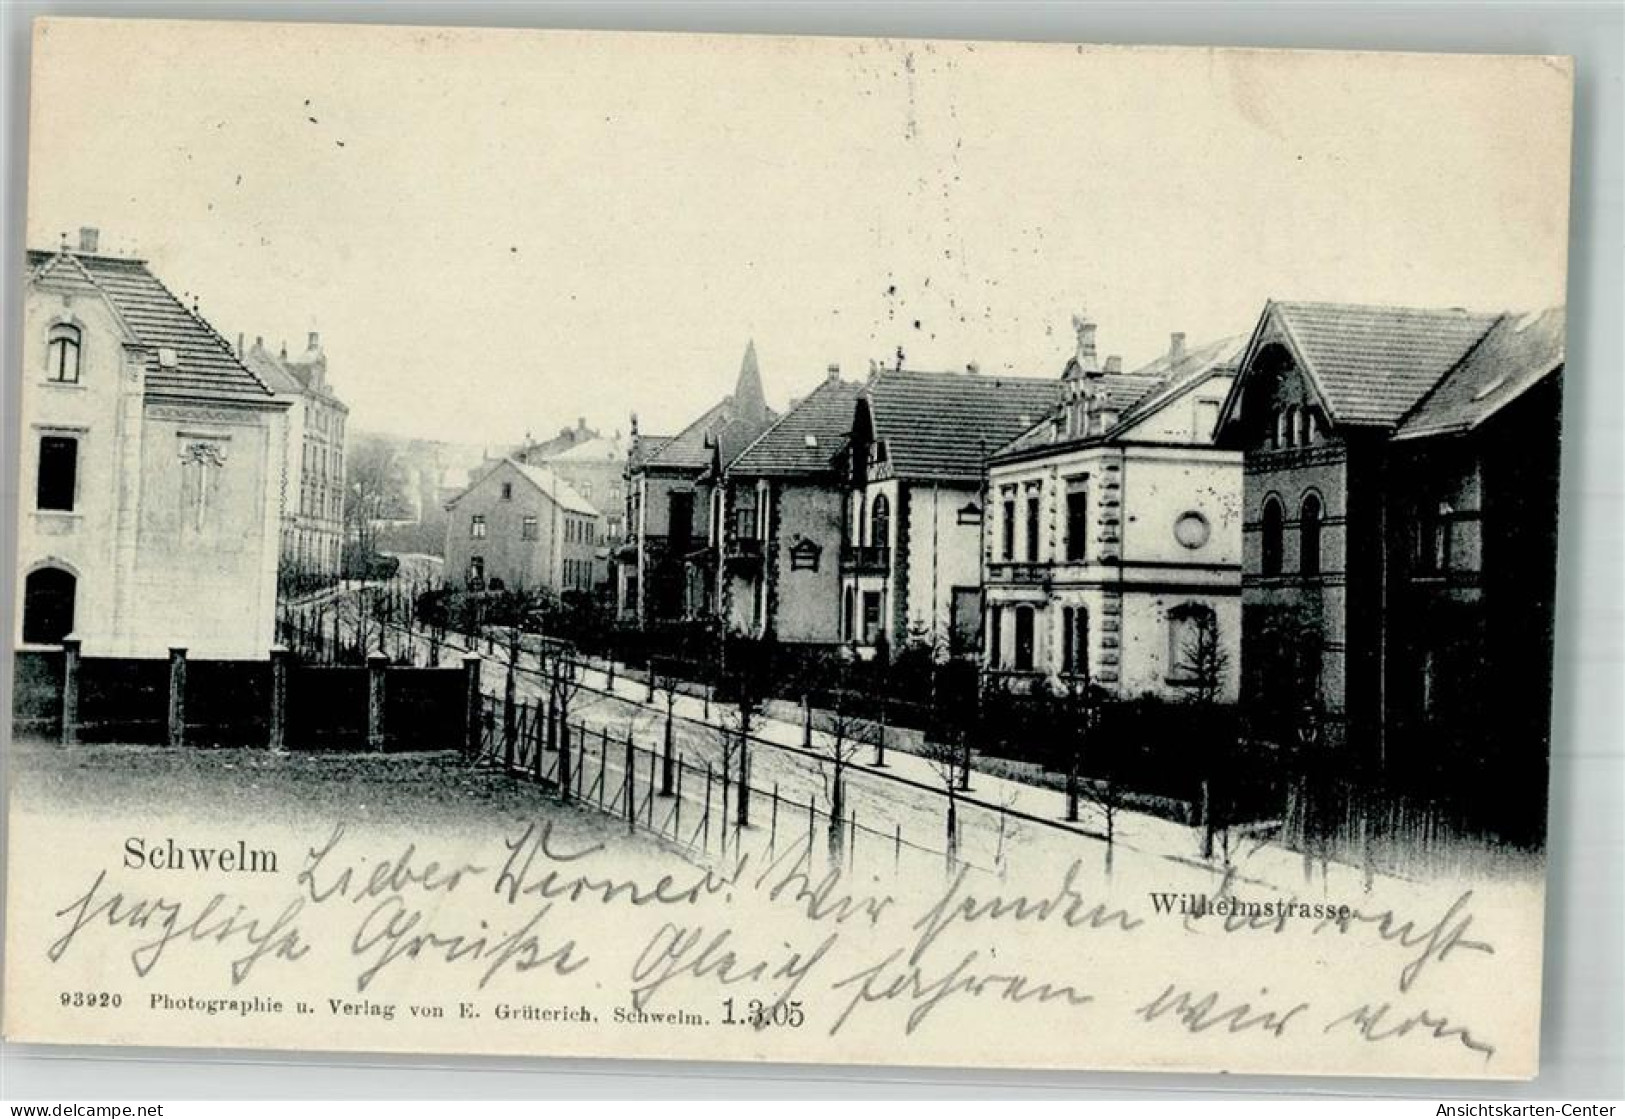 Schwelm
Lieber Werner! Wir senden Dir recht
Wilhelmstrasse.
herzliche Grüße. Gleich fahren wir von
93920 Photographie u. Verlag von E. Grüterich, Schwelm. 1.3.05
www.delcampe.net
Ansichtskarten-Center